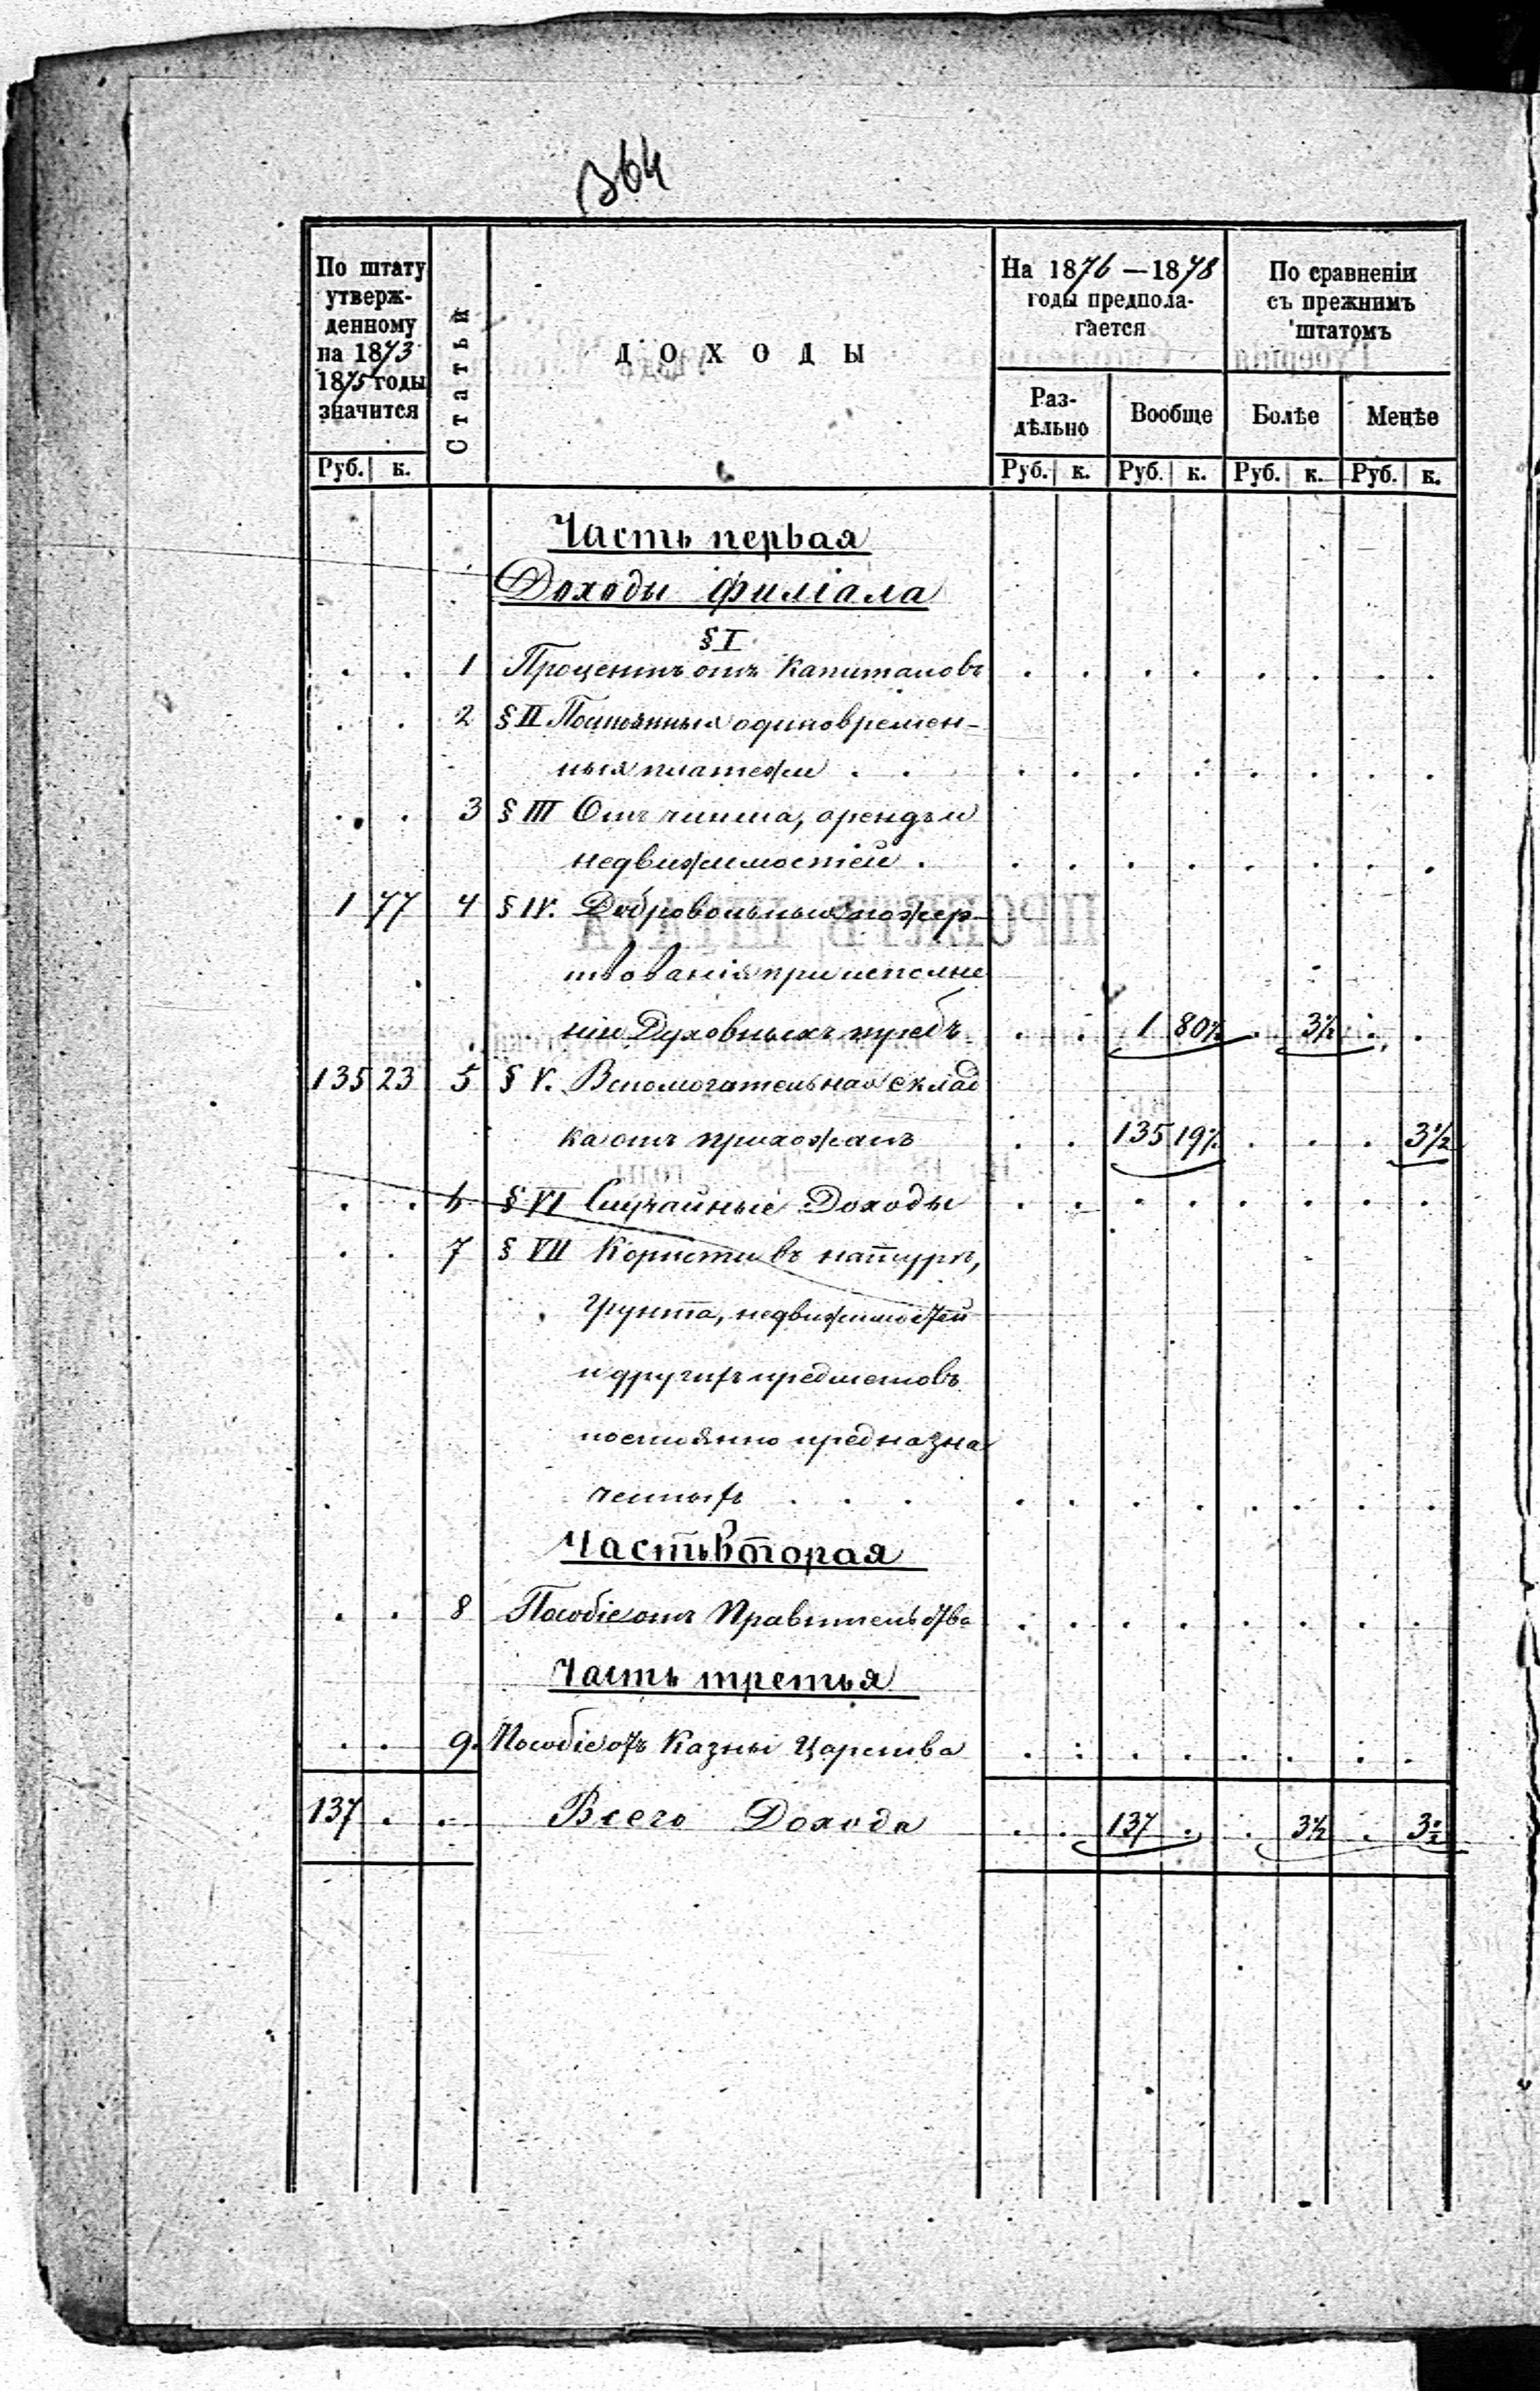 364
По штату
утверж-
денному
на 1873
1875 годы
значится
Статьи
ДОХОДЫ
На 1876 — 1878
годы предпола-
гается
По сравненіи
съ прежнимъ
штатомъ
Раз-
дѣльно
Вообще
Болѣе
Менѣе
Руб. к. Руб. к. Руб. к. Руб. к. Руб. к.
Часть первая
Доходы филіала
§ I
. . 1 Процентъ отъ капиталовъ . . . . . . . .
. . 2 § II одновремен-
ныя платежи . . . . . . . . . .
. . 3 § III Отъ чинша, аренды и
недвижимостей . . . . . . . . .
1 77 4 § IV. Добровольныя пожер-
твованія при исполне
ніи Духовныхъ требъ . . 1 80½ . 3½ . .
135 23 5 § V. Вспомогательная склад
ка отъ прихожанъ . . 135 19½ . . . 3½
. . 6 § VI Случайные Доходы . . . . . . . .
. . 7 § VII Користи въ натурѣ,
грунта, недвижимостей
и другихъ предметовъ
постоянно предназна
ченныхъ . . . . . . . . . . .
Часть вторая
. . 8 Пособіе отъ Правительства . . . . . . . .
Часть третья
. . 9. Пособіе отъ Казны Царства . . . . . . . .
137 . . Всего Дохода . . 137 . . 3½ . 3½